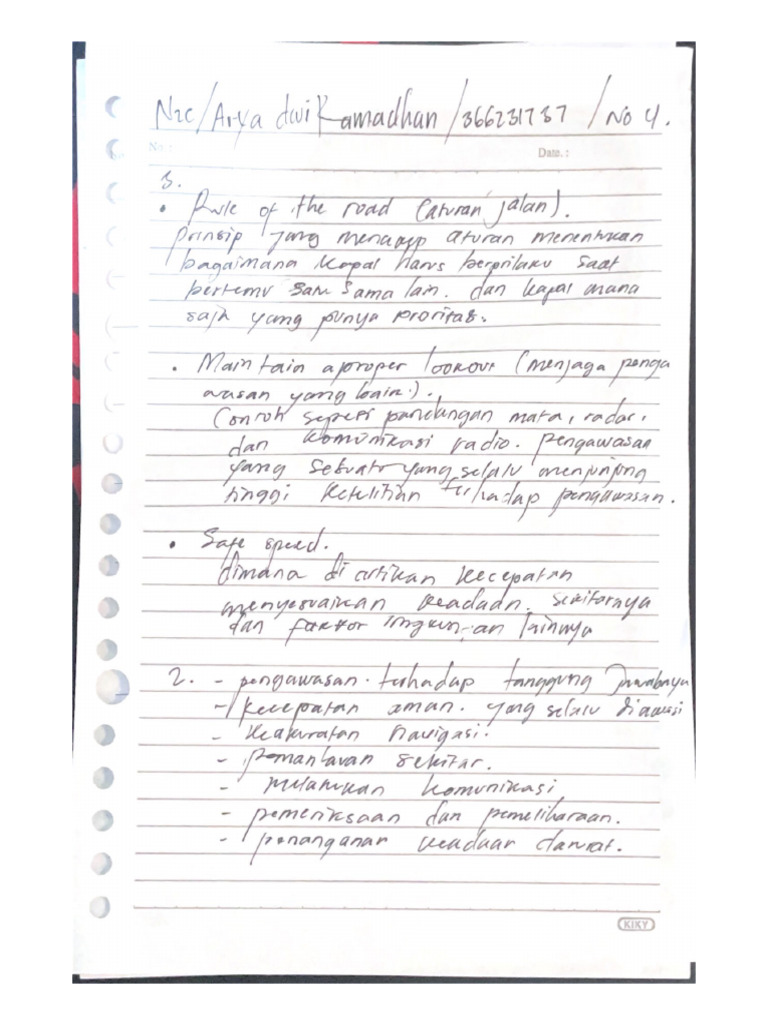 N2C/Arya dwi Ramadhan /366231737 /No 4.
No. : Date. :
3.
• Rule of the road (aturan jalan).
prinsip yang mencakup aturan menentukan
bagaimana kapal harus berprilaku saat
bertemu satu sama lain. dan kapal mana
saja yang punya prioritas.
• Maintain a proper lookout (menjaga penga
wasan yang baik.).
Contoh seperti pandangan mata, radar,
dan komunikasi radio. pengawasan
yang sebuah yang selalu menjunjung
tinggi ketelitian terhadap pengawasan.
• Safe speed.
dimana di artikan kecepatan
menyesuaikan keadaan. sekitarnya
dan faktor lingkun-an lainnya
2. - pengawasan. terhadap tanggung jawabnya
- kecepatan aman. yang selalu diawasi
- keakuratan Navigasi.
- pemantauan sekitar.
- melakukan komunikasi
- pemeriksaan dan pemeliharaan.
- penanganan keadaan darurat.
KIKY